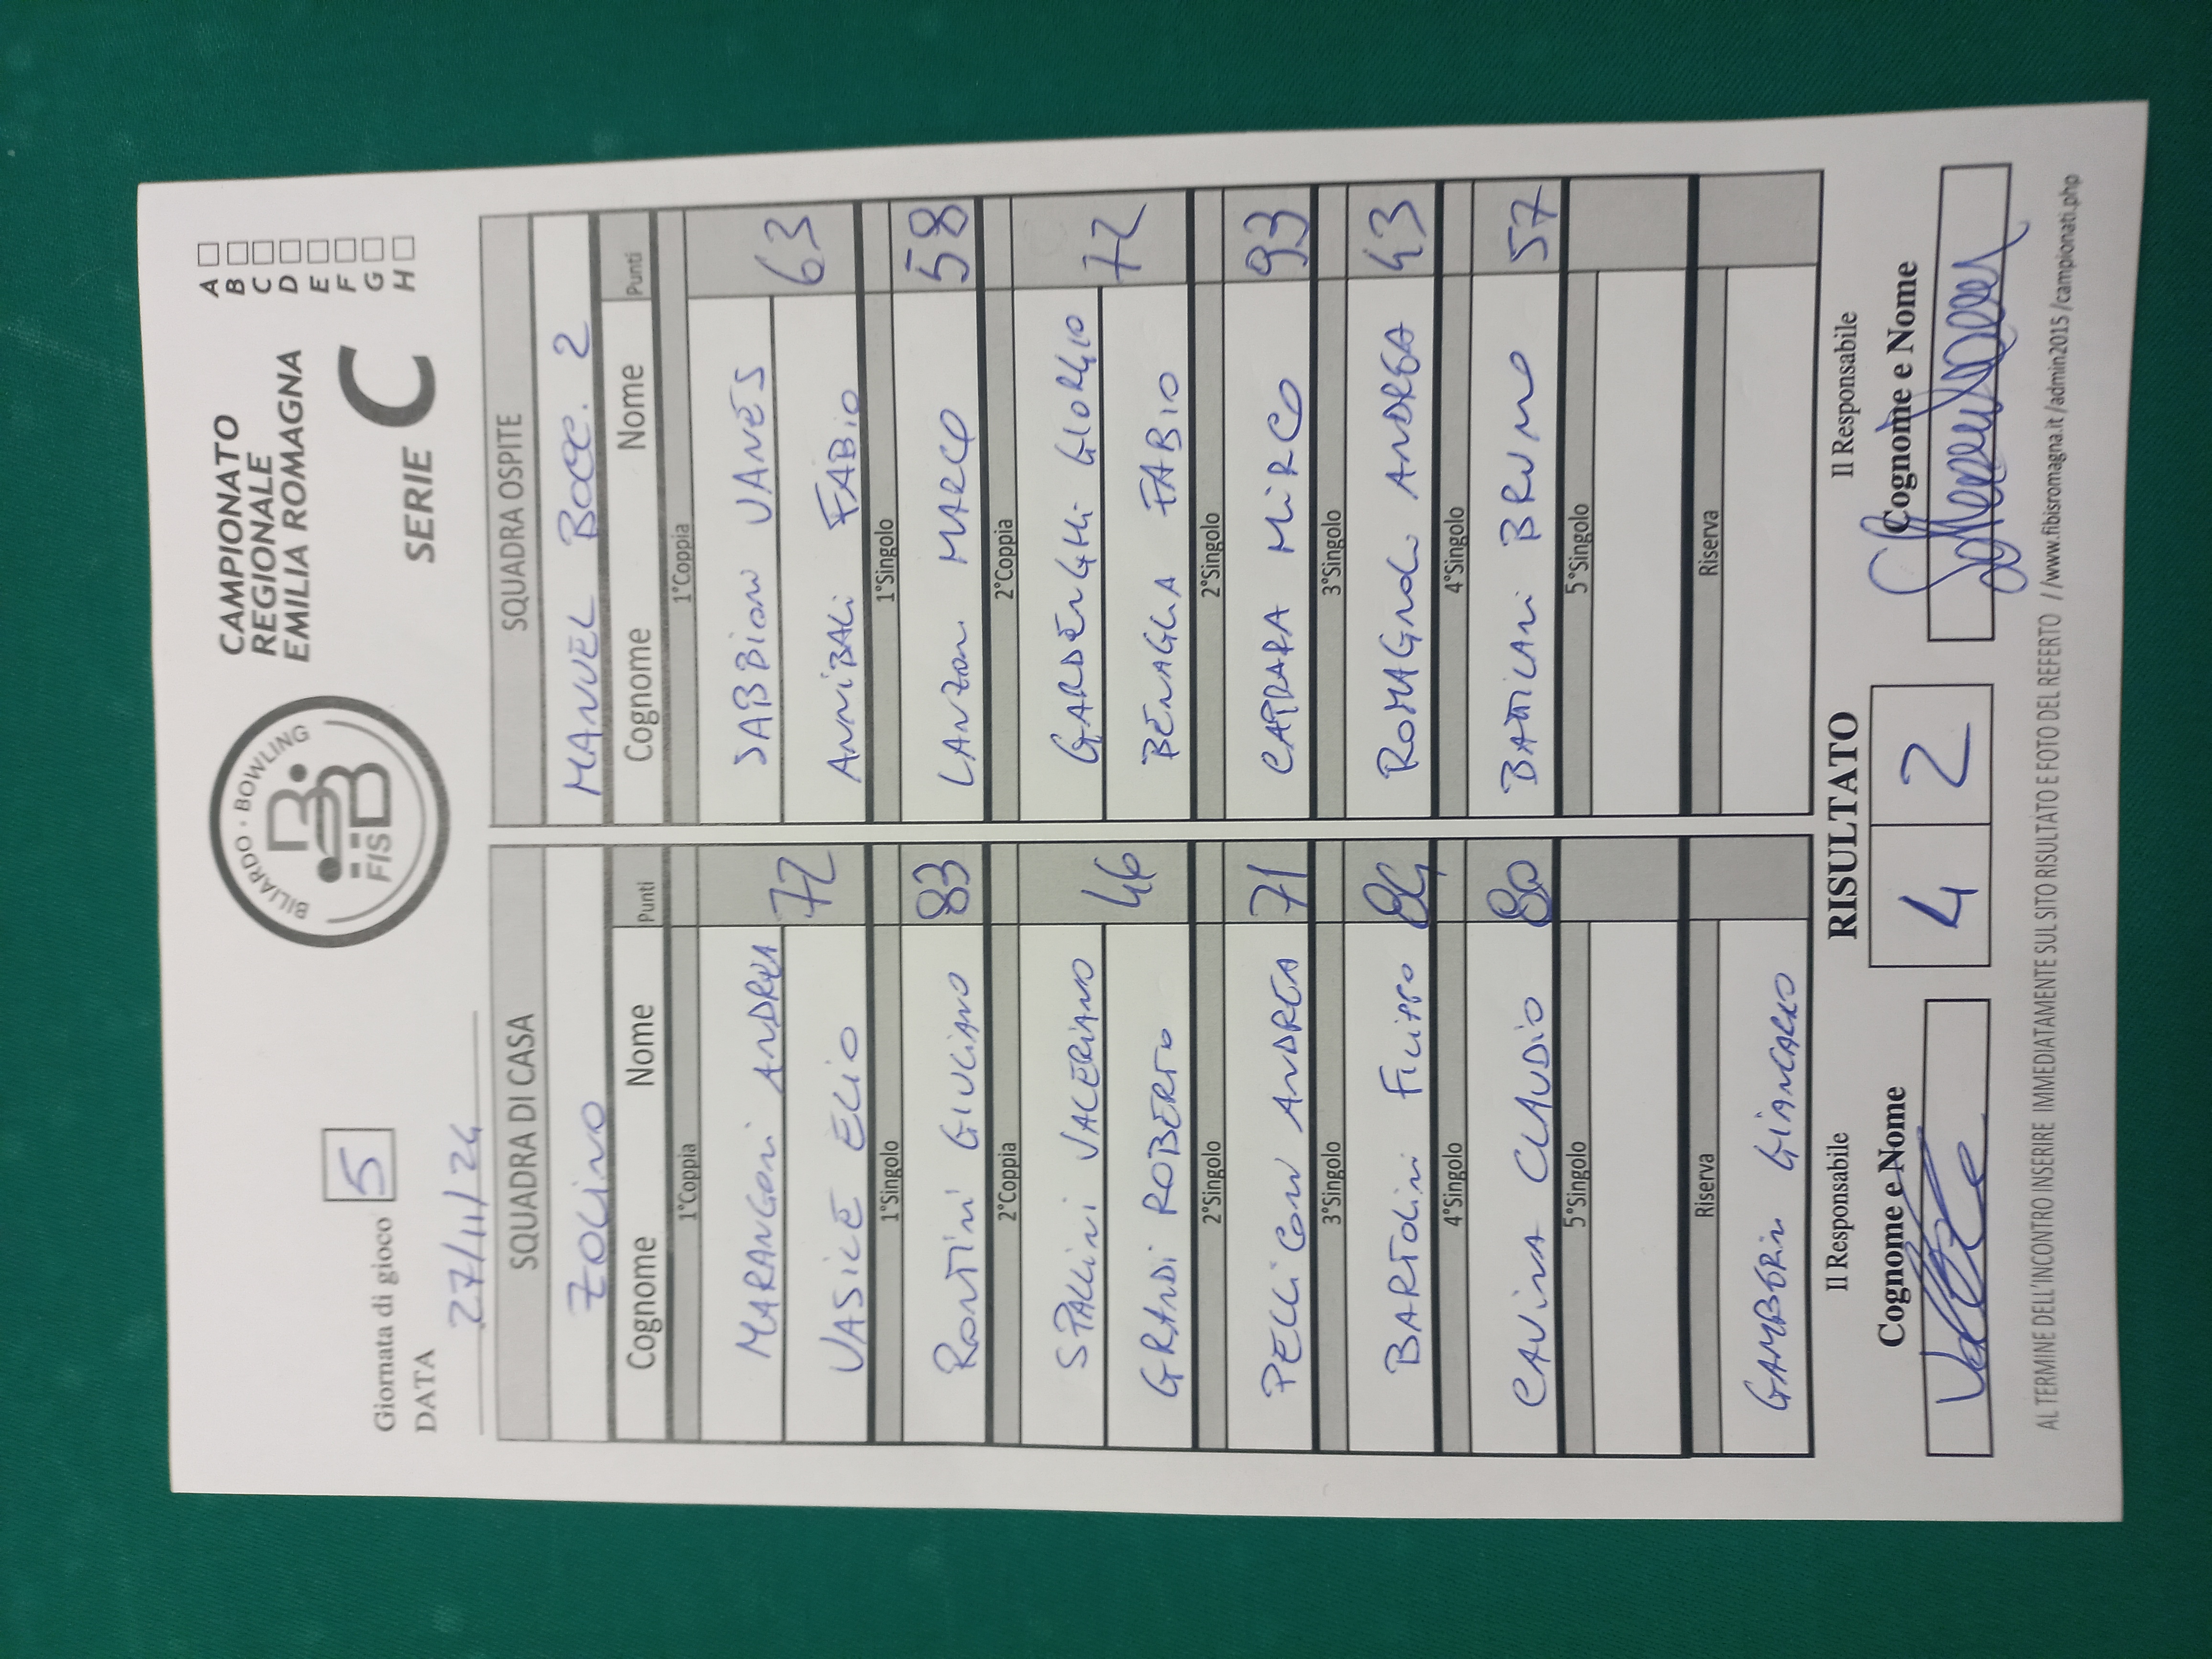 Giornata di gioco 5
DATA
27/11/24
BILIARDO · BOWLING
FISBB
CAMPIONATO
REGIONALE
EMILIA ROMAGNA
SERIE C
A
B
C
D
E
F
G
H
SQUADRA DI CASA
ZOLINO
Cognome Nome Punti
1°Coppia
MARANGONI ANDREA
VASILE ELIO 72
1°Singolo
RONTINI GIULIANO 83
2°Coppia
SPALLINI VALERIANO
GRANDI ROBERTO 46
2°Singolo
PELLICONI ANDREA 71
3°Singolo
BARTOLINI FILIPPO 84
4°Singolo
CAVINA CLAUDIO 80
5°Singolo
Riserva
GAMBERINI GIANCARLO
SQUADRA OSPITE
MANUEL BOCC. 2
Cognome Nome Punti
1°Coppia
SABBIONI VANES
ANNIBALI FABIO 63
1°Singolo
LANZONI MARCO 58
2°Coppia
GARDENGHI GIORGIO
BENAGLIA FABIO 72
2°Singolo
CARRARA MIRCO 93
3°Singolo
ROMAGNOLI ANDREA 43
4°Singolo
BATTILANI BRUNO 57
5°Singolo
Riserva
Il Responsabile
Cognome e Nome
RISULTATO
4 2
Il Responsabile
Cognome e Nome
AL TERMINE DELL'INCONTRO INSERIRE IMMEDIATAMENTE SUL SITO RISULTATO E FOTO DEL REFERTO //www.fibisromagna.it/admin2015/campionati.php